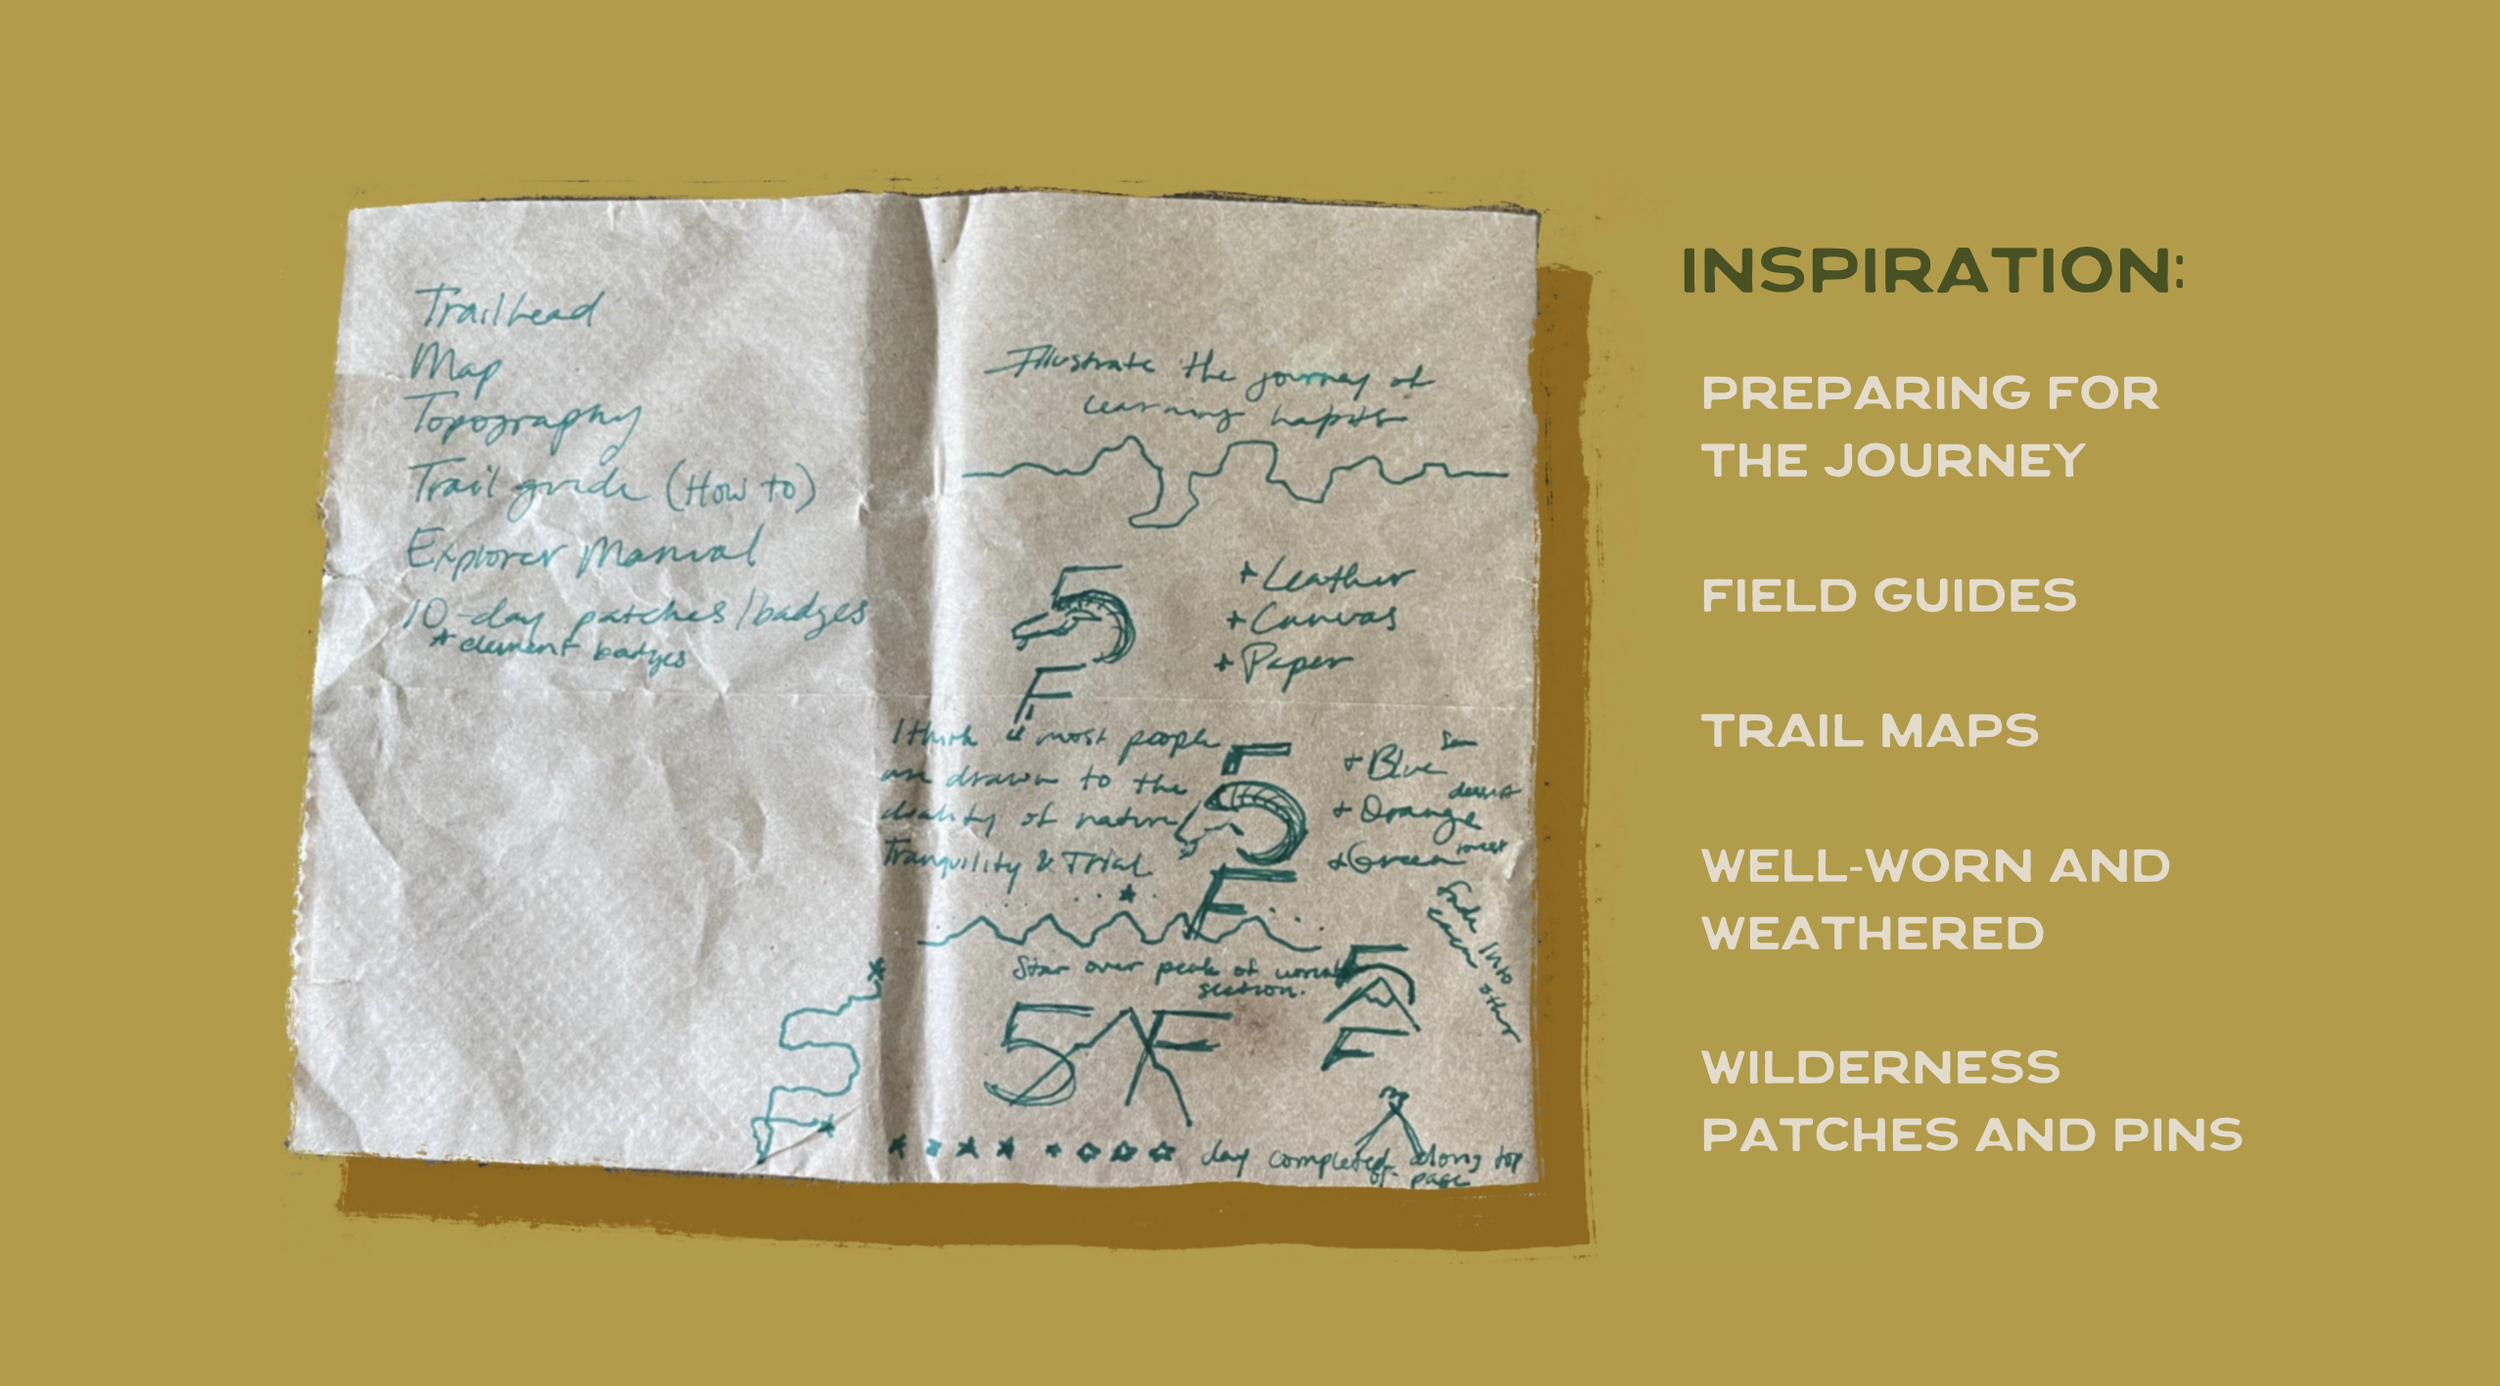 Trailhead
Map
Topography
Trail guide (How to)
Explorer Manual
10-day patches/badges
* element badges
Illustrate the journey of
learning habits
5
F
+ Leather
+ Canvas
+ Paper
I think most people
are drawn to the
duality of nature
Tranquility & Trial
5
F
+ Blue
+ Orange desert
+ Green forest
Fade into
each other
Star over peak of
section.
5 F
5
F
day completed along top
of page
INSPIRATION:
PREPARING FOR
THE JOURNEY
FIELD GUIDES
TRAIL MAPS
WELL-WORN AND
WEATHERED
WILDERNESS
PATCHES AND PINS